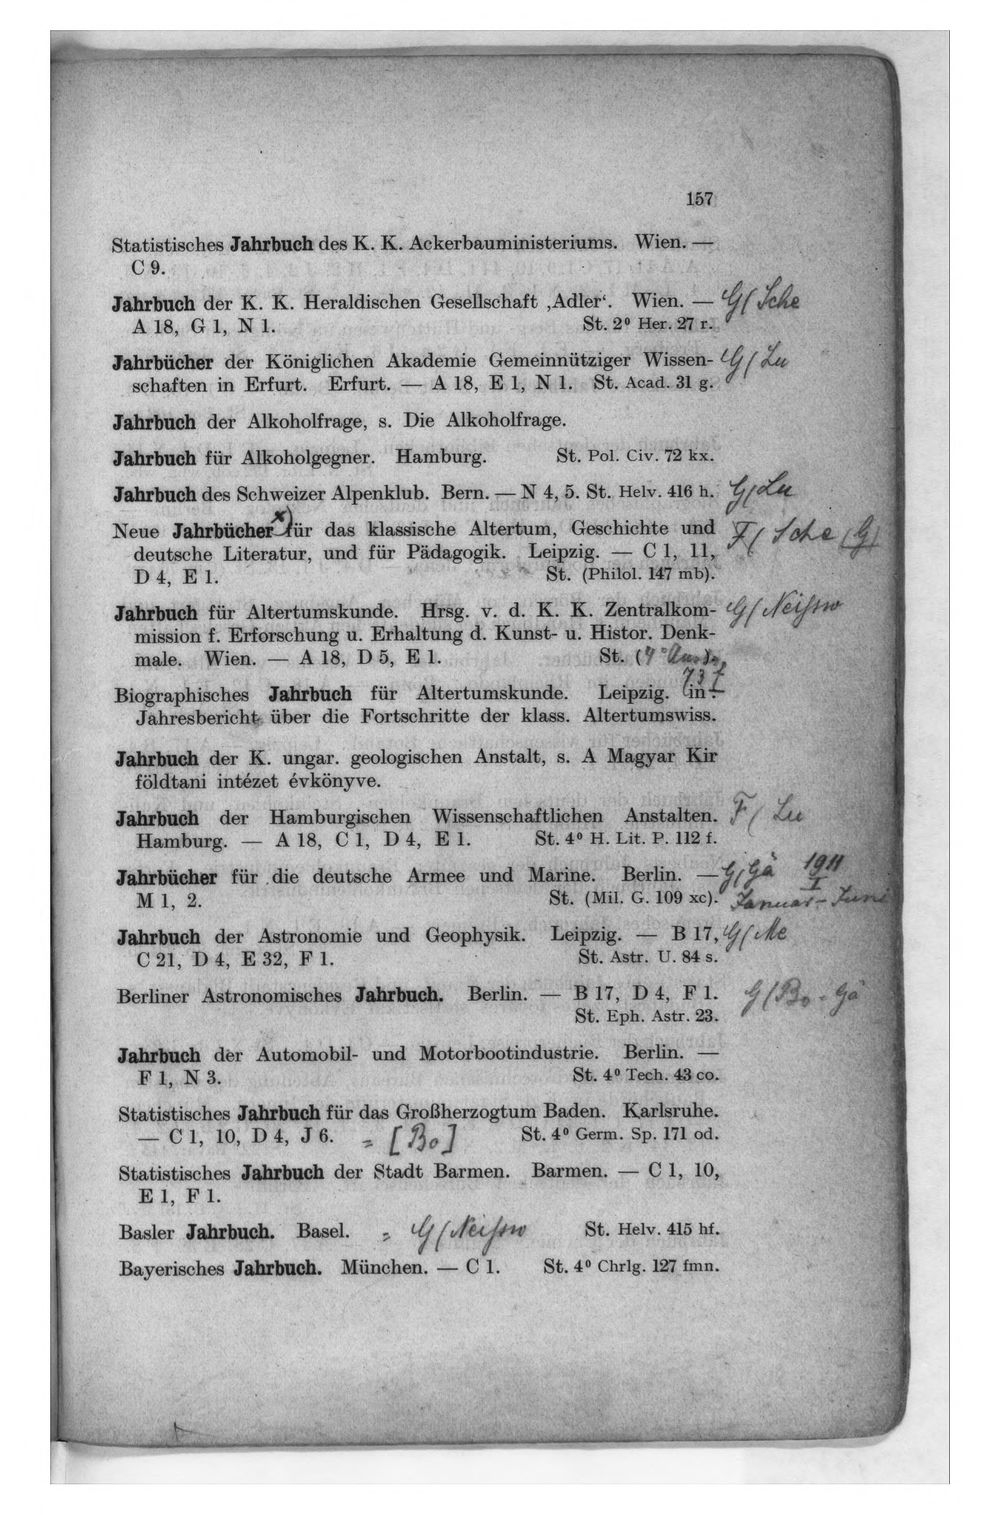 157
Statistisches Jahrbuch des K. K. Ackerbauministeriums. Wien. —
C 9.
Jahrbuch der K. K. Heraldischen Gesellschaft ‚Adler‘. Wien. — G/Sche
A 18, G 1, N 1. St. 2⁰ Her. 27 r.
Jahrbücher der Königlichen Akademie Gemeinnütziger Wissen- G/Lu
schaften in Erfurt. Erfurt. — A 18, E 1, N 1. St. Acad. 31 g.
Jahrbuch der Alkoholfrage, s. Die Alkoholfrage.
Jahrbuch für Alkoholgegner. Hamburg. St. Pol. Civ. 72 kx.
Jahrbuch des Schweizer Alpenklub. Bern. — N 4, 5. St. Helv. 416 h. G/Lu
Neue Jahrbücher x) für das klassische Altertum, Geschichte und F/Sche (G)
deutsche Literatur, und für Pädagogik. Leipzig. — C 1, 11,
D 4, E 1. St. (Philol. 147 mb).
Jahrbuch für Altertumskunde. Hrsg. v. d. K. K. Zentralkom- G/Neisser
mission f. Erforschung u. Erhaltung d. Kunst- u. Histor. Denk-
male. Wien. — A 18, D 5, E 1. St. (4⁰
737
Biographisches Jahrbuch für Altertumskunde. Leipzig. in
Jahresbericht über die Fortschritte der klass. Altertumswiss.
Jahrbuch der K. ungar. geologischen Anstalt, s. A Magyar Kir
földtani intézet évkönyve.
Jahrbuch der Hamburgischen Wissenschaftlichen Anstalten. F/Lu
Hamburg. — A 18, C 1, D 4, E 1. St. 4⁰ H. Lit. P. 112 f.
Jahrbücher für die deutsche Armee und Marine. Berlin. — G/Gä 1911 I
M 1, 2. St. (Mil. G. 109 xc). Januar-Juni
Jahrbuch der Astronomie und Geophysik. Leipzig. — B 17, G/Me
C 21, D 4, E 32, F 1. St. Astr. U. 84 s.
Berliner Astronomisches Jahrbuch. Berlin. — B 17, D 4, F 1. G/Bo-Gä
St. Eph. Astr. 23.
Jahrbuch der Automobil- und Motorbootindustrie. Berlin. —
F 1, N 3. St. 4⁰ Tech. 43 co.
Statistisches Jahrbuch für das Großherzogtum Baden. Karlsruhe.
— C 1, 10, D 4, J 6. = [Bo] St. 4⁰ Germ. Sp. 171 od.
Statistisches Jahrbuch der Stadt Barmen. Barmen. — C 1, 10,
E 1, F 1.
Basler Jahrbuch. Basel. = G/Neisser St. Helv. 415 hf.
Bayerisches Jahrbuch. München. — C 1. St. 4⁰ Chrlg. 127 fmn.